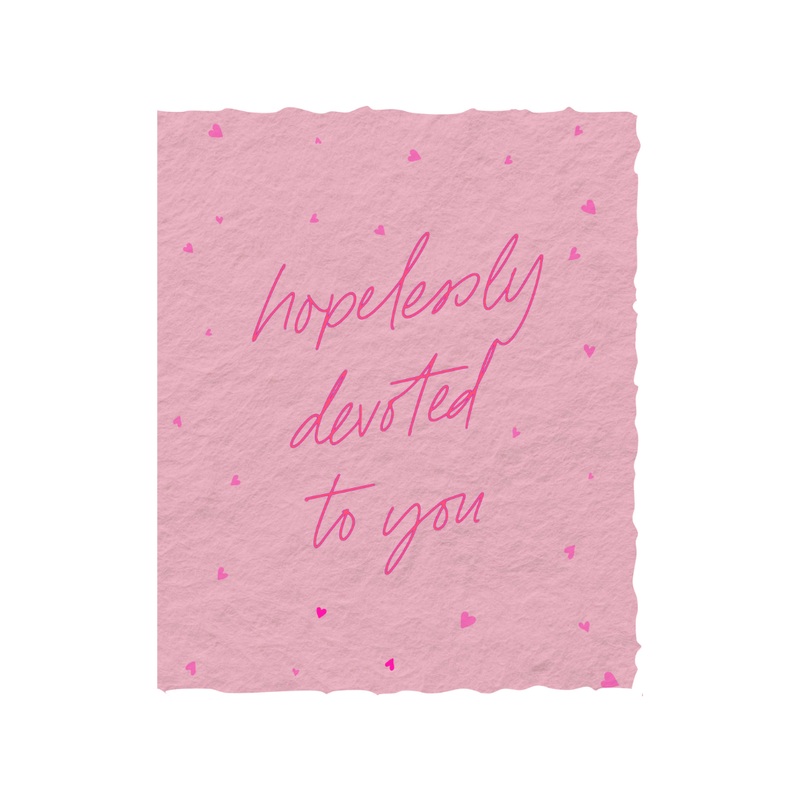 hopelessly
devoted
to you